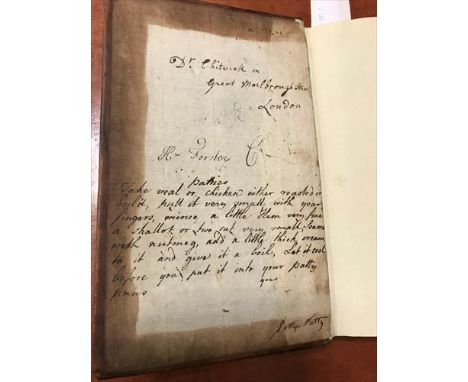 Dr. Chitwick in
Great Marlbrough Street
London
Hn Forster
Patties
Take veal or chicken either roasted or
boil'd, pull it very small with your
fingers, mince a little Ham very fine
a shallot or two cut very small, season
with nutmeg, add a little thick cream
to it and give it a boil, Let it cool
before you put it into your patty
pans